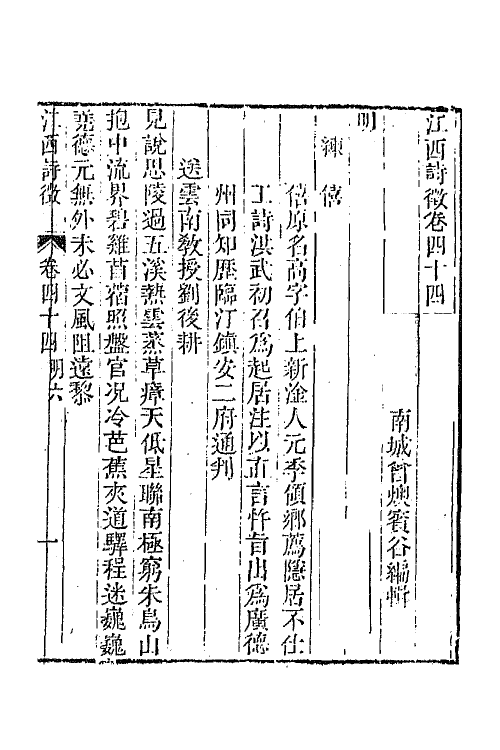 江西詩徵卷四十四
南城曾燠賓谷編輯
明
練僖
僖原名高字伯上新淦人元季領鄉薦隱居不仕
工詩洪武初召爲起居注以直言忤旨出爲廣德
州同知歷臨汀鎮安二府通判
送雲南敎授劉後耕
見說思陵過五溪熱雲蒸草瘴天低星聯南極窮朱鳥山
抱中流界碧雞苜蓿照盤官况冷芭蕉夾道驛程迷巍巍
堯德元無外未必文風阻遠黎
江西詩徵 卷四十四 明六 一